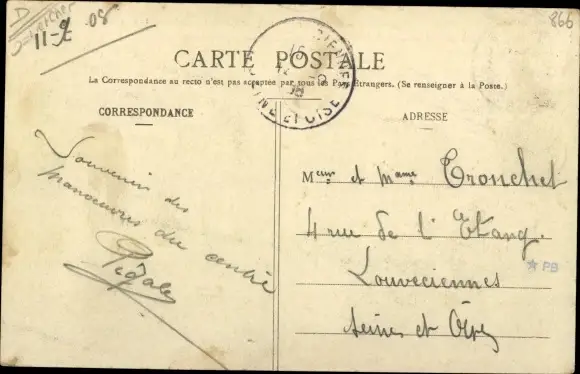 D
11-9 08
866
CARTE POSTALE
La Correspondance au recto n'est pas acceptée par tous les Pays Étrangers. (Se renseigner à la Poste.)
CORRESPONDANCE
ADRESSE
ET OISE
Souvenir des
manoeuvres du centre
Meur et Mame Tronchet
4 rue de l'Etang.
Louveciennes
Seine et Oise
PB